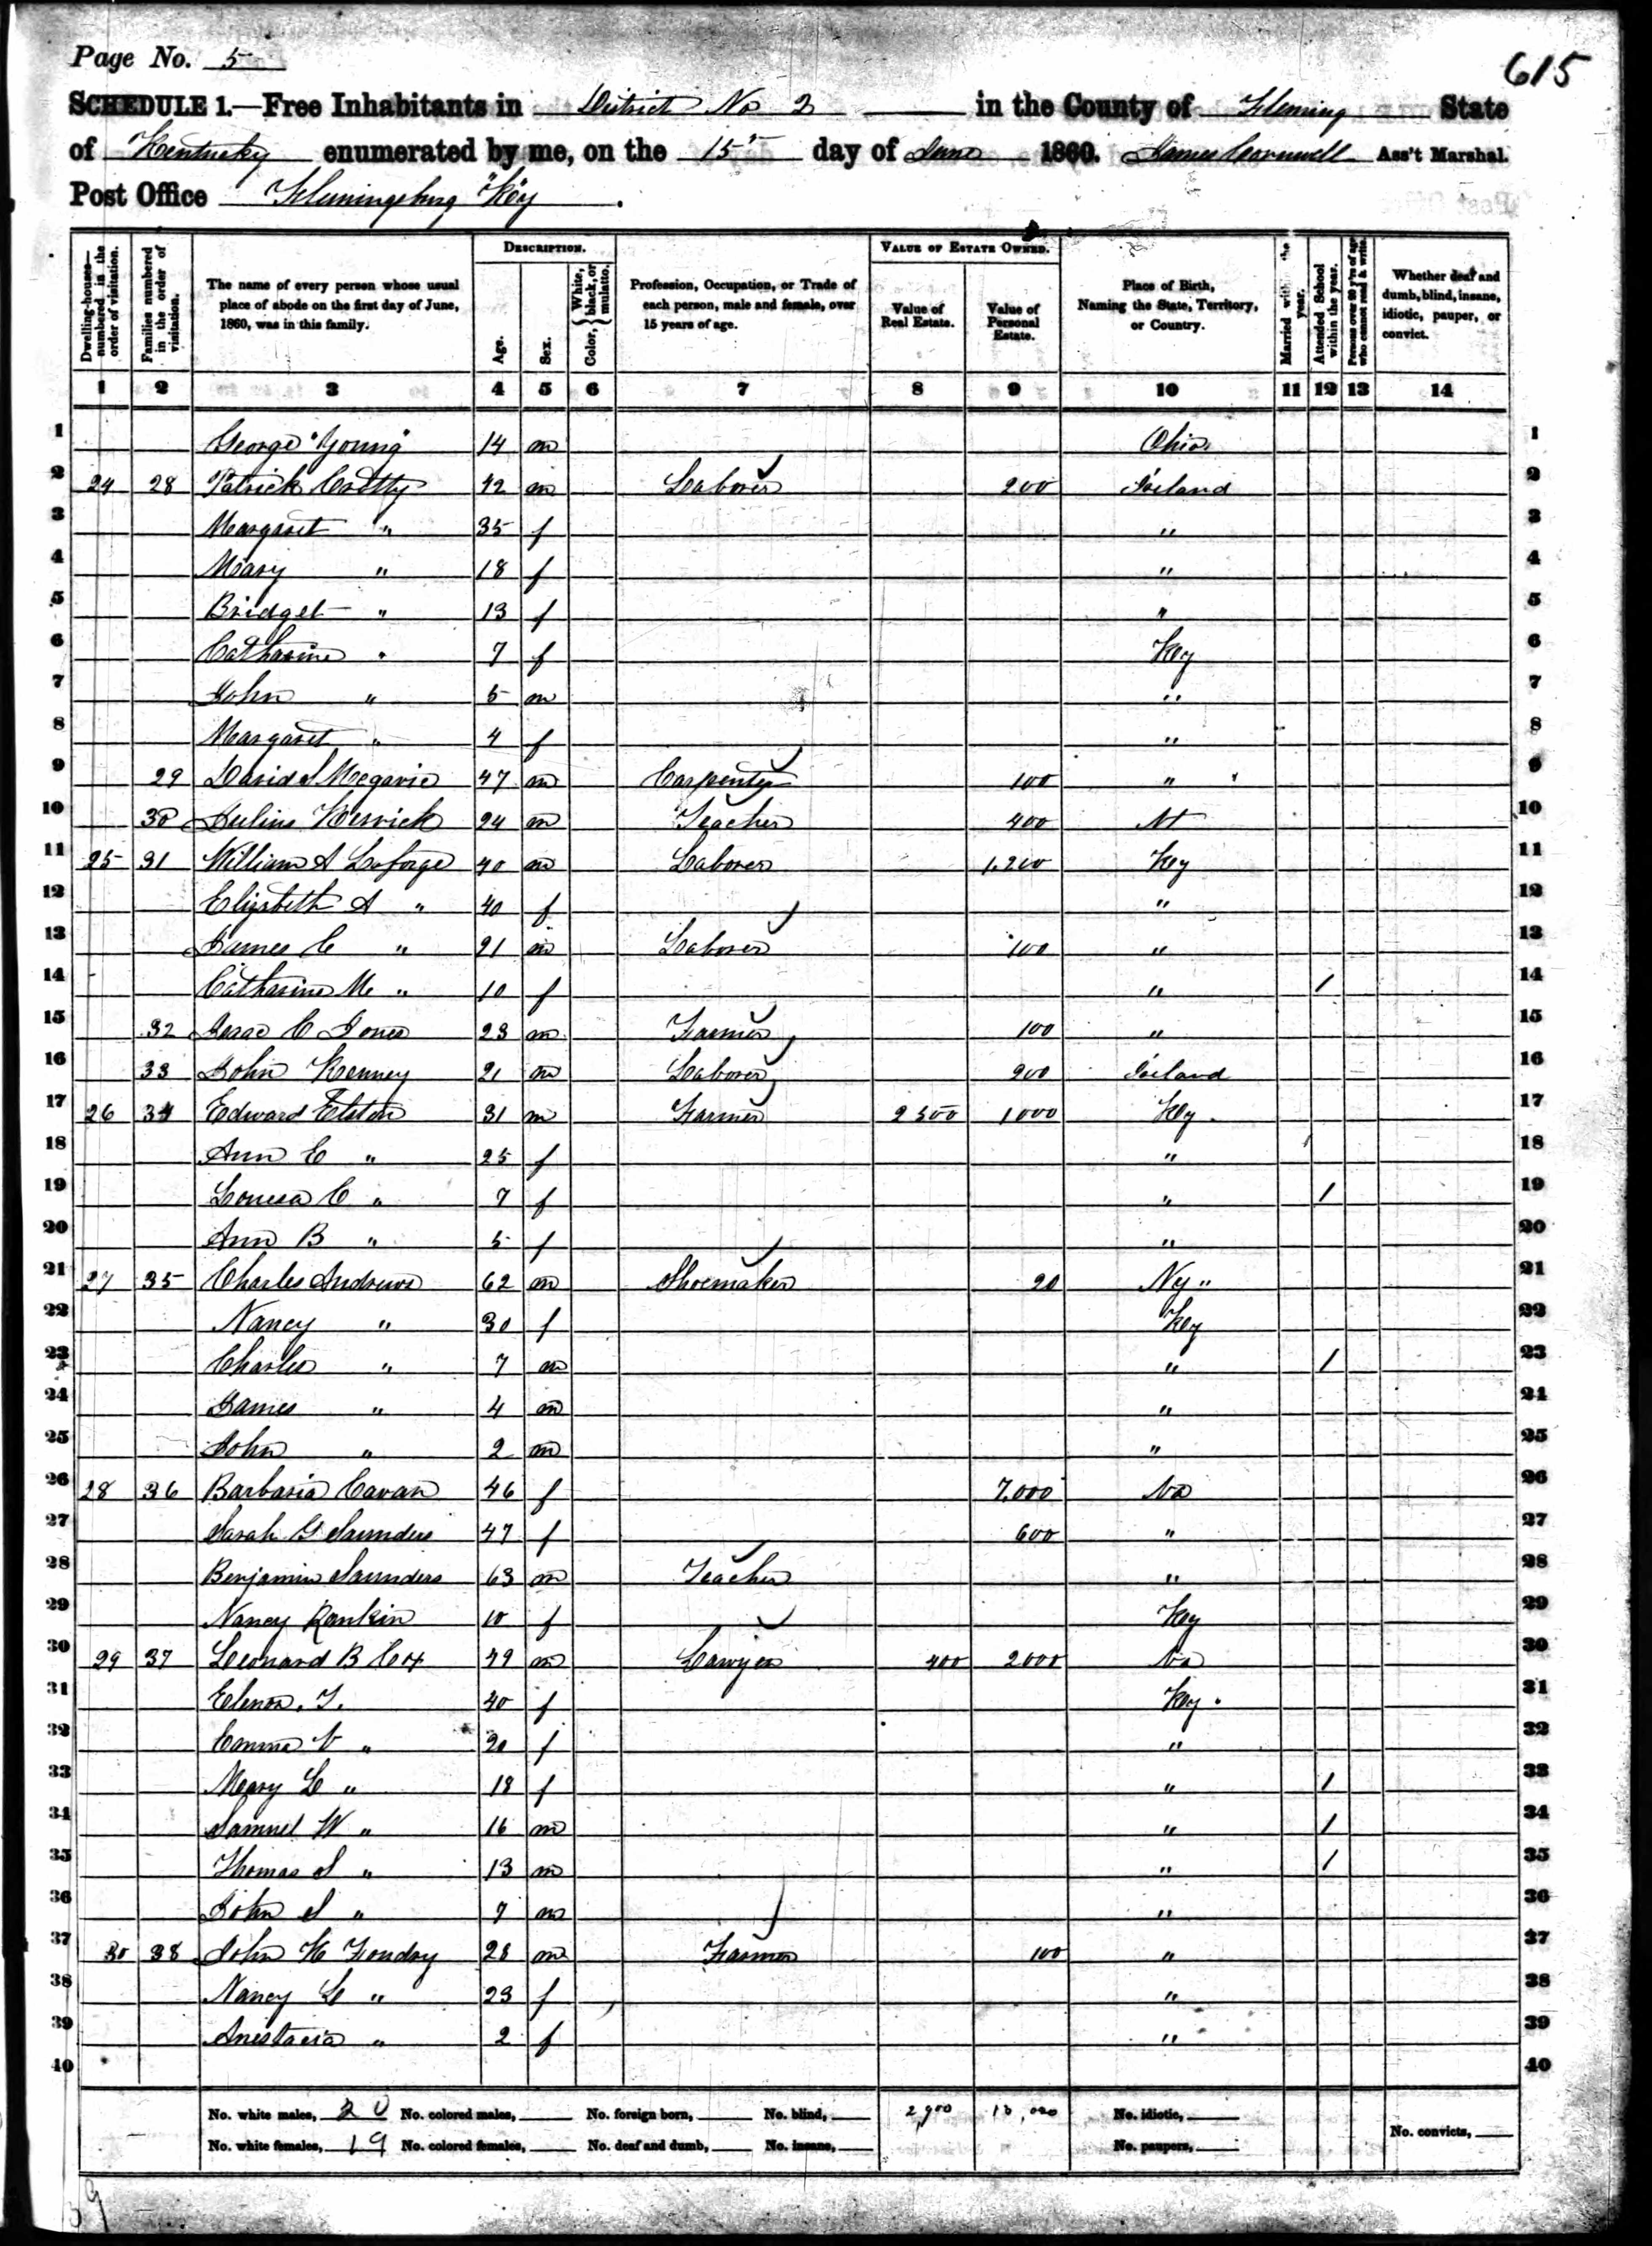 Page No. 5
615
SCHEDULE 1.—Free Inhabitants in District No 2 in the County of Fleming State
of Kentucky enumerated by me, on the 15" day of June 1860. James Cornwell Ass't Marshal.
Post Office Flemingsburg "Key"
Dwelling-houses—numbered in the order of visitation.
Families numbered in the order of visitation.
The name of every person whose usual place of abode on the first day of June, 1860, was in this family.
DESCRIPTION.
Age.
Sex.
Color, White, black, or mulatto.
Profession, Occupation, or Trade of each person, male and female, over 15 years of age.
VALUE OF ESTATE OWNED.
Value of Real Estate.
Value of Personal Estate.
Place of Birth, Naming the State, Territory, or Country.
Married within the year.
Attended School within the year.
Persons over 20 y'rs of age who cannot read & write.
Whether deaf and dumb, blind, insane, idiotic, pauper, or convict.
1 2 3 4 5 6 7 8 9 10 11 12 13 14
1 George "Young" 14 m Ohio 1
2 24 28 Patrick Crotty 42 m Laborer 200 Ireland 2
3 Margaret " 35 f " 3
4 Mary " 18 f " 4
5 Bridget " 13 f " 5
6 Catharine " 7 f Key 6
7 John " 5 m " 7
8 Margaret " 4 f " 8
9 29 David S Megavic 47 m Carpenter 100 " 9
10 30 Julius Herrick 24 m Teacher 400 10
11 25 31 William A Laforge 40 m Laborer 1,200 Key 11
12 Elizabeth A " 40 f " 12
13 James C " 21 m Laborer 100 " 13
14 Catharine M " 10 f " / 14
15 32 Isaac C Jones 23 m Farmer 100 " 15
16 33 John Kenney 21 m Laborer 200 Ireland 16
17 26 34 Edward Elston 31 m Farmer 2500 1000 Key 17
18 Ann E " 25 f " 18
19 Louesa C " 7 f " / 19
20 Ann B " 5 f " 20
21 27 35 Charles Andrews 62 m Shoemaker 20 Ny " 21
22 Nancy " 30 f Key 22
23 Charles " 7 m " / 23
24 James " 4 m " 24
25 John " 2 m " 25
26 28 36 Barbaria Cavan 46 f 7,000 Va 26
27 Sarah G Saunders 47 f 600 " 27
28 Benjamin Saunders 63 m Teacher " 28
29 Nancy Rankin 10 f Key 29
30 29 37 Leonard B Cox 49 m Lawyer 400 2000 Va 30
31 Elenor. T. 40 f Key 31
32 Emma V " 20 f " 32
33 Mary L " 18 f " / 33
34 Samuel W " 16 m " / 34
35 Thomas S " 13 m " / 35
36 John S " 7 m " 36
37 30 38 John H Foudry 28 m Farmer 100 " 37
38 Nancy L " 23 f " 38
39 Anestacia " 2 f " 39
40 40
No. white males, 20 No. colored males, No. foreign born, No. blind, 2,900 No. idiotic,
No. white females, 19 No. colored females, No. deaf and dumb, No. insane, No. paupers, No. convicts,